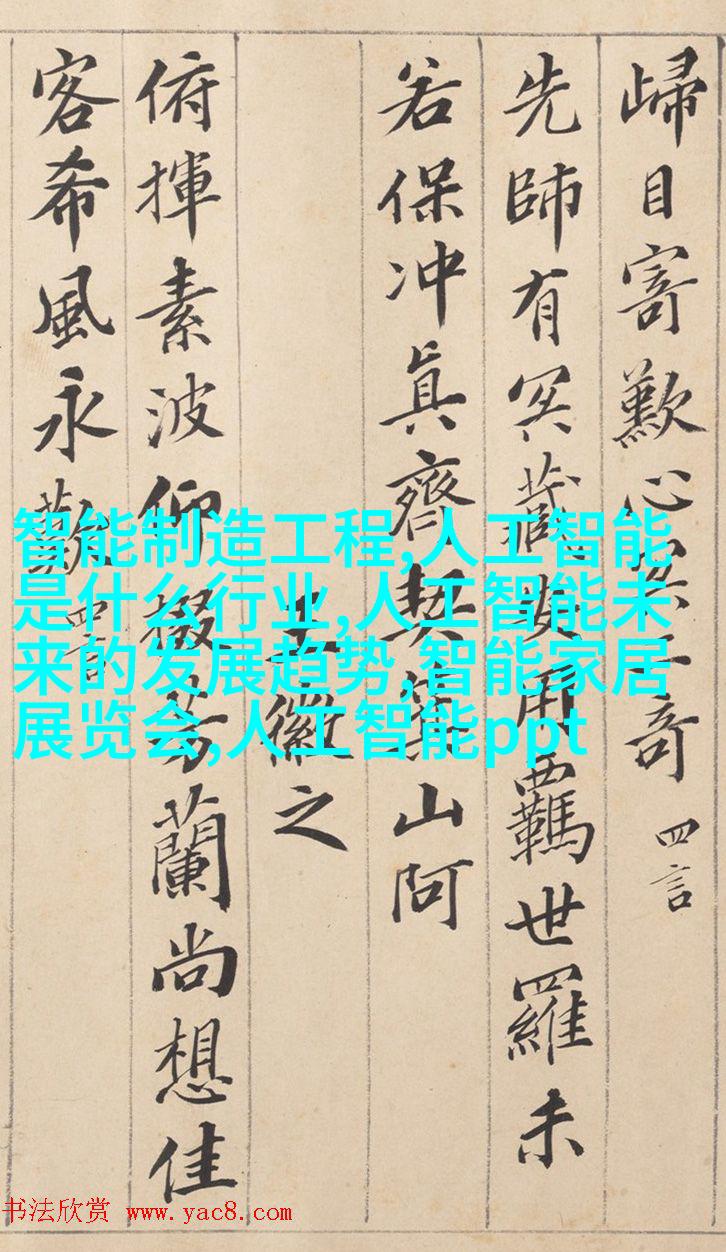 歸目寄歎心冥二奇 四言
先師有冥藏安用羈世羅未
若保冲眞齊契箕山阿
王徽之
俯揮素波仰掇芳蘭尚想佳
客希風永歎 四言
智能制造工程,人工智能
是什么行业,人工智能未
来的发展趋势,智能家居
展览会,人工智能ppt
书法欣赏 www.yac8.com